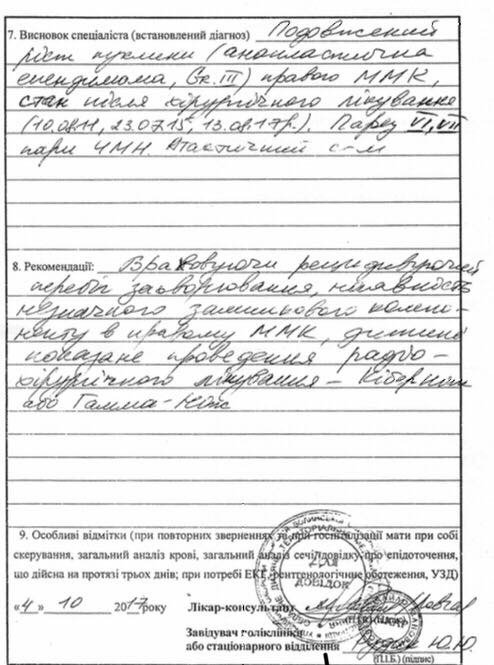 7. Висновок спеціаліста (встановлений діагноз) Подовжений
ріст пухлини (анапластична
епендимома, Gr. III) правого ММК,
стан після хірургічного лікування
(10.08.11, 23.07.15, 13.09.17р.). Парез VI, VII
пари ЧМН. Атактичний с-м
8. Рекомендації: Враховуючи рецидивуючий
перебіг захворювання, наявність
незначного залишкового компо-
ненту в правому ММК, дитині
показане проведення радіо-
хірургічного лікування – Кіберніж
або Гамма-Ніж
9. Особливі відмітки (при повторних зверненнях та при госпіталізації мати при собі
скерування, загальний аналіз крові, загальний аналіз сечі, довідку про епідоточення,
що дійсна на протязі трьох днів; при потребі ЕКГ, рентгенологічне обстеження, УЗД)
«4» 10 2017року Лікар-консультант
ДЛЯ
ДОВІДОК
Завідувач поліклініки
або стаціонарного відділення Ю.Ю.
(П.І.Б.) (підпис)